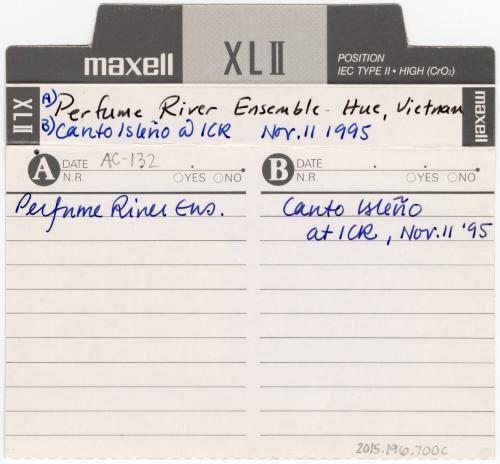 maxell XLII POSITION
IEC TYPE II • HIGH (CrO₂)
XLII
A) Perfume River Ensemble - Hue, Vietnam
B) Canto Isleño @ ICR Nov. 11 1995
maxell
A DATE AC-132
N.R. ○YES ○NO
B DATE
N.R. ○YES ○NO
Perfume River Ens.
Canto Isleño
at ICR, Nov. 11 '95
2015.196.700C